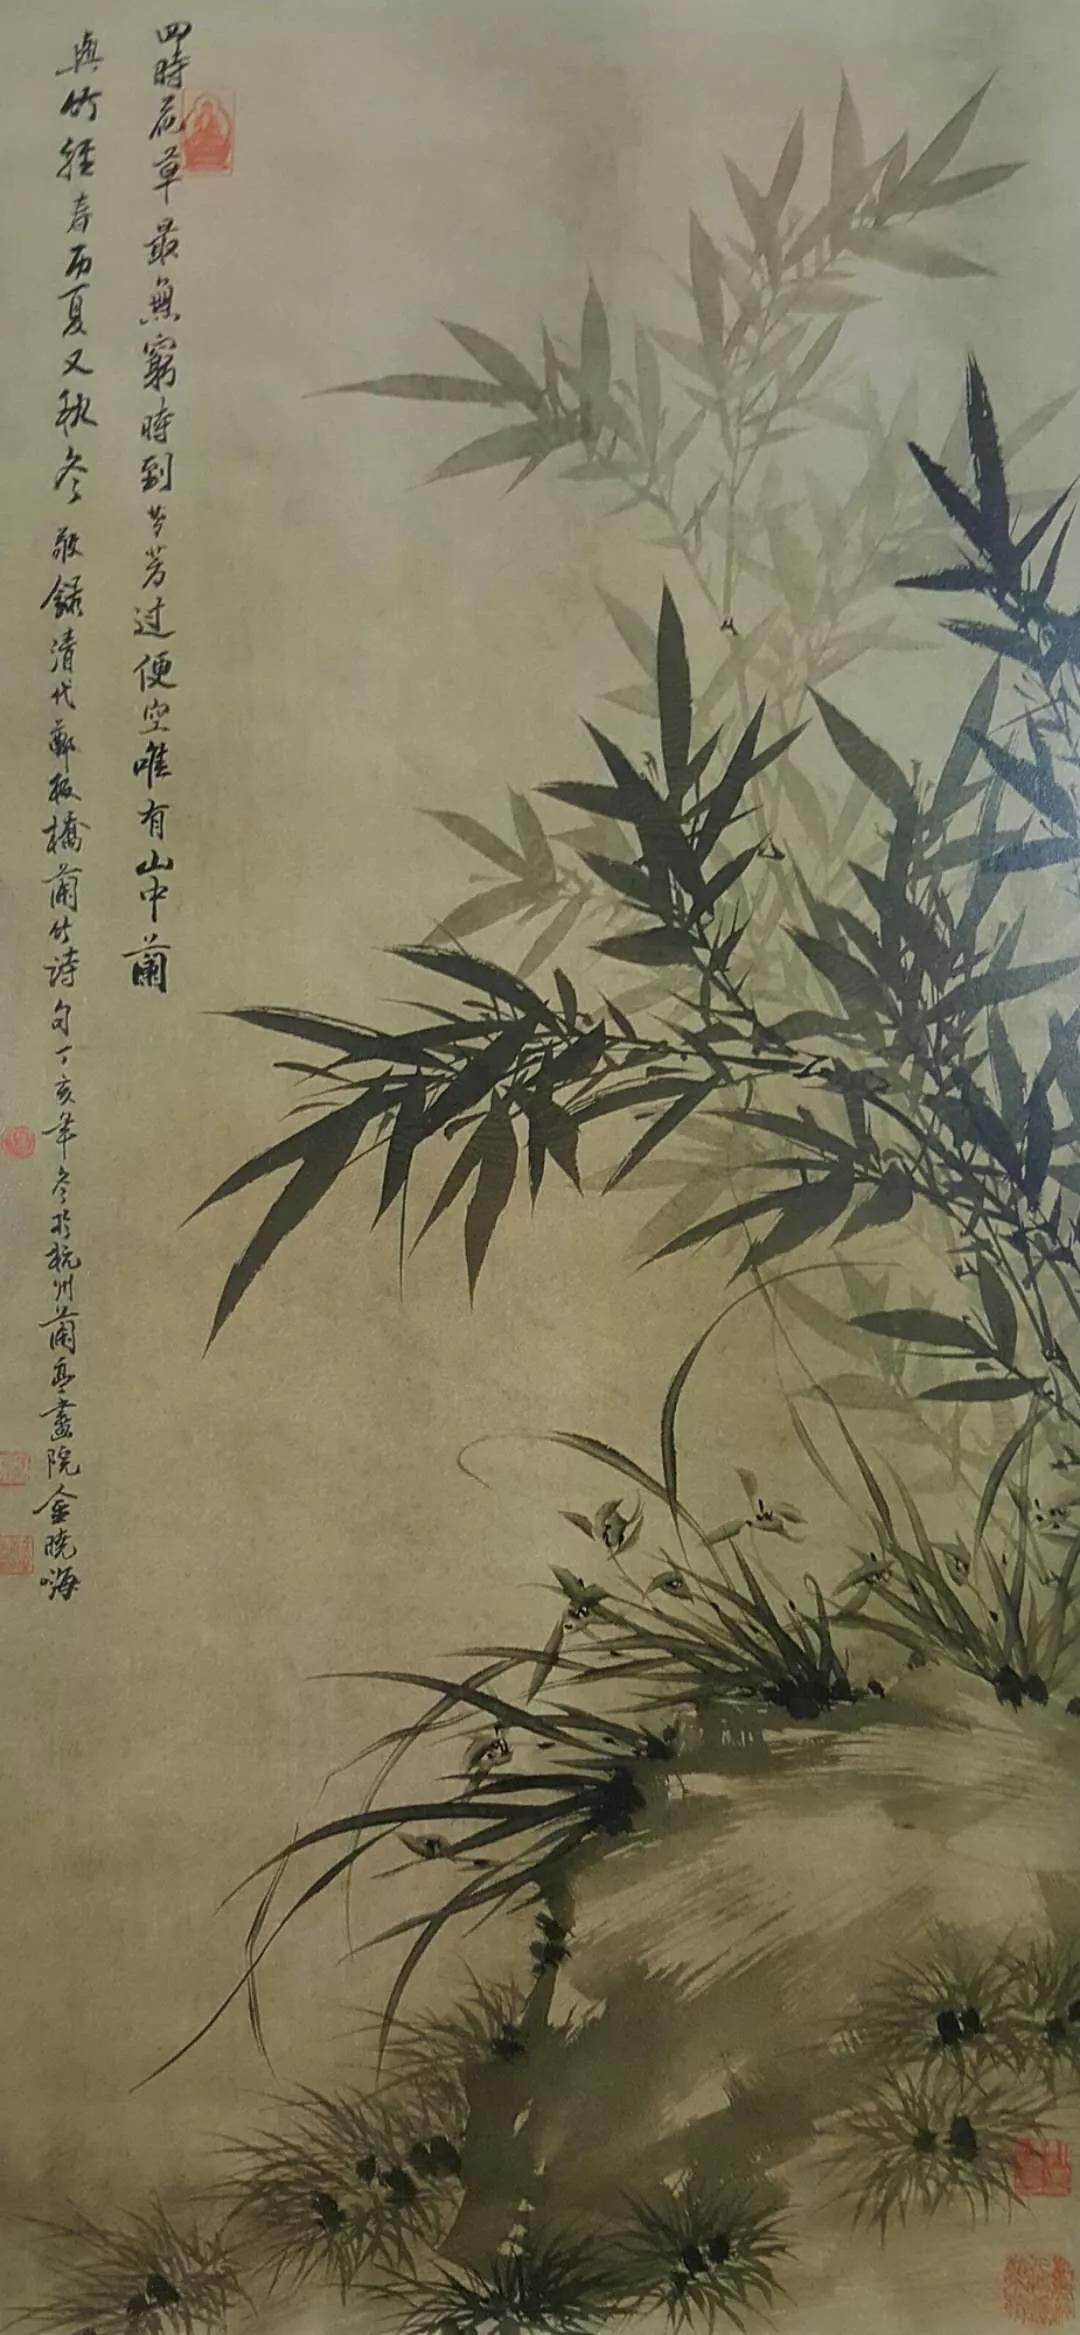 四時花草最無窮時到芬芳过便空唯有山中蘭
與竹經春而夏又秋冬 敬録清代鄭板橋蘭竹詩句丁亥年冬於杭州蘭亭畫院金曉海